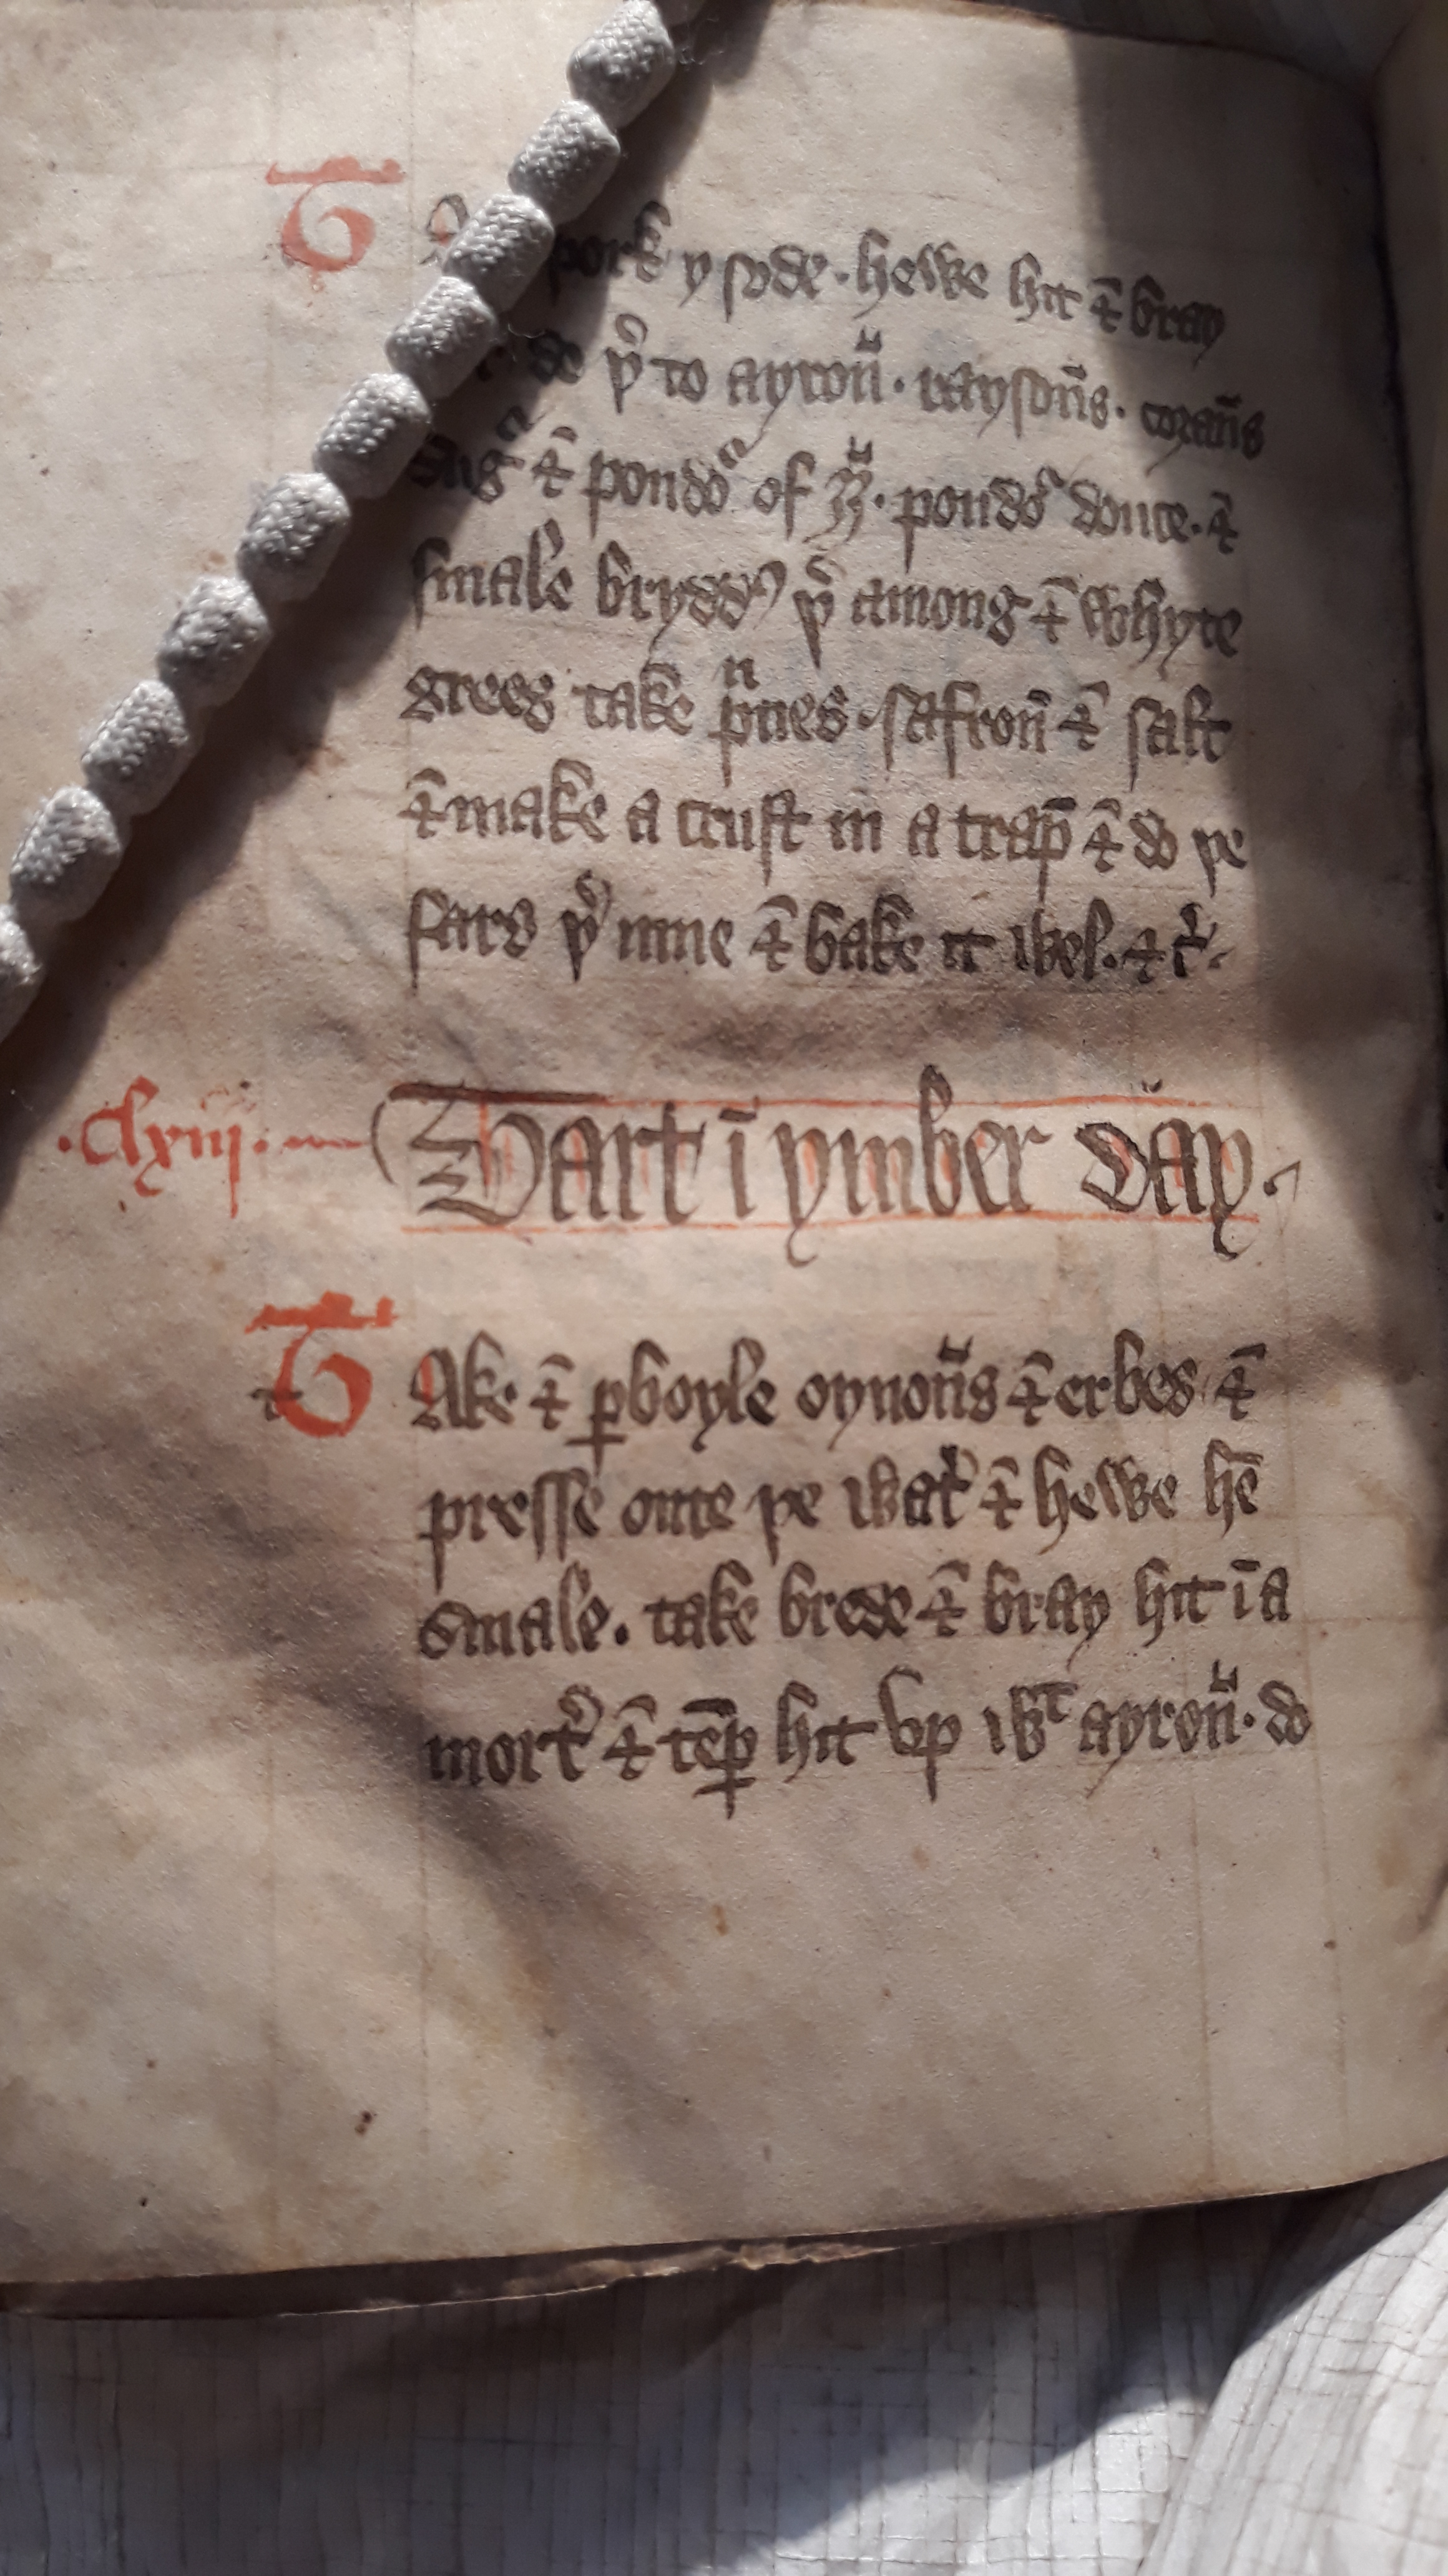 T
pork y sode. hewe hit ⁊ bray
de þ͛ to ayroū. raysoūs. coraūs
sug͛ ⁊ poudo͛ of gyͬ. poudo͛ douce. ⁊
smale brydd͛ þ͛ among ⁊ whyte
grees take pͬnes. safroū ⁊ salt
⁊ make a crust in a trap̄ ⁊ do þe
fars þ͛ inne ⁊ bake it wel. ⁊ c͛.
.Clxiij. Tart ī ymber day.
TAke ⁊ ꝑboyle oynoūs ⁊ erbes ⁊
presse oute þe wat͛ ⁊ hewe hē
smale. take brede ⁊ bray hit ī a
mort͛ ⁊ tēꝑ hit vp wͭ ayroū. do